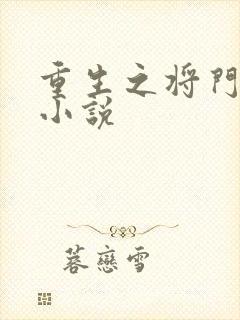 重生之将門
小説
蓉戀雪